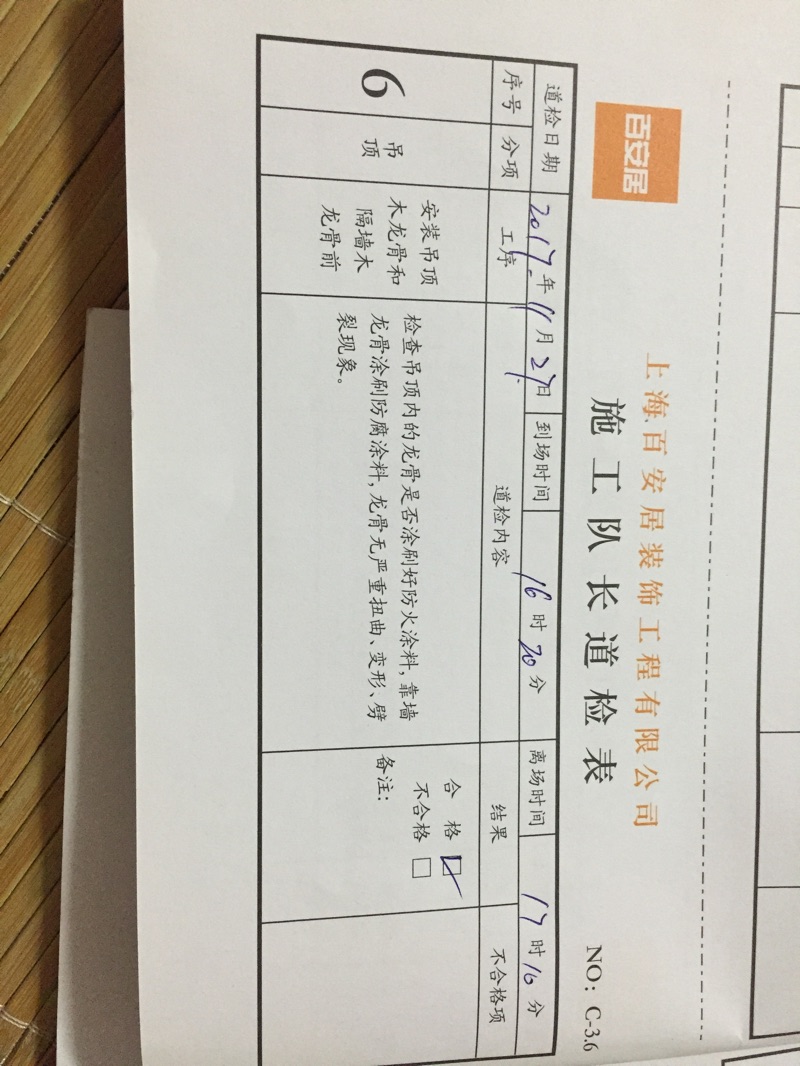 百安居
上海百安居装饰工程有限公司
施工队长道检表
NO: C-3.6
道检日期 2017年11月27日 到场时间 16时20分 离场时间 17时10分
序号 分项 工序 道检内容 结果 不合格项
6
吊
顶
安装吊顶
木龙骨和
隔墙木
龙骨前
检查吊顶内的龙骨是否涂刷好防火涂料,靠墙
龙骨涂刷防腐涂料,龙骨无严重扭曲、变形、劈
裂现象。
合 格
不合格
备注: